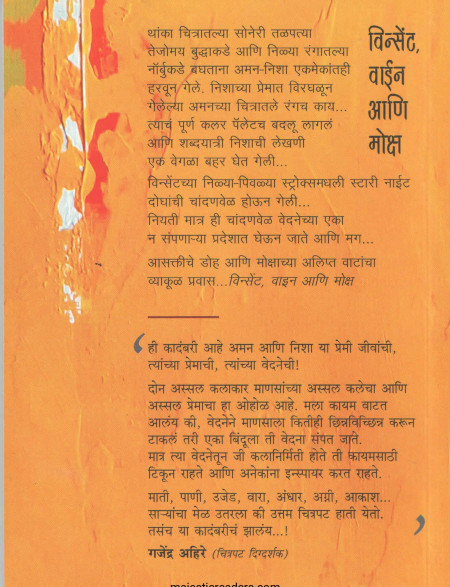 थांका चित्रातल्या सोनेरी तळपत्या
तेजोमय बुद्धाकडे आणि निळ्या रंगातल्या
नॉर्बुकडे बघताना अमन-निशा एकमेकांतही
हरवून गेले. निशाच्या प्रेमात विरघळून
गेलेल्या अमनच्या चित्रातले रंगच काय...
त्याचं पूर्ण कलर पॅलेटच बदलू लागलं
आणि शब्दयात्री निशाची लेखणी
एक वेगळा बहर घेत गेली...
विन्सेंटच्या निळ्या-पिवळ्या स्ट्रोक्समधली स्टारी नाईट
दोघांची चांदणवेळ होऊन गेली...
नियती मात्र ही चांदणवेळ वेदनेच्या एका
न संपणाऱ्या प्रदेशात घेऊन जाते आणि मग...
आसक्तीचे डोह आणि मोक्षाच्या अलिप्त वाटांचा
व्याकूळ प्रवास...विन्सेंट, वाइन आणि मोक्ष
विन्सेंट,
वाईन
आणि
मोक्ष
‘ही कादंबरी आहे अमन आणि निशा या प्रेमी जीवांची,
त्यांच्या प्रेमाची, त्यांच्या वेदनेची!
दोन अस्सल कलाकार माणसांच्या अस्सल कलेचा आणि
अस्सल प्रेमाचा हा ओहोळ आहे. मला कायम वाटत
आलंय की, वेदनेने माणसाला कितीही छिन्नविच्छिन्न करून
टाकलं तरी एका बिंदूला ती वेदना संपत जाते.
मात्र त्या वेदनेतून जी कलानिर्मिती होते ती कायमसाठी
टिकून राहते आणि अनेकांना इन्स्पायर करत राहते.
माती, पाणी, उजेड, वारा, अंधार, अग्नी, आकाश...
साऱ्यांचा मेळ उतरला की उत्तम चित्रपट हाती येतो.
तसंच या कादंबरीचं झालंय...!’
गजेंद्र अहिरे (चित्रपट दिग्दर्शक)
majesticreaders.com